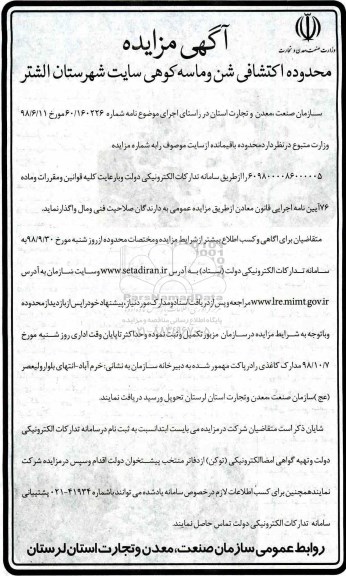 وزارت صنعت، معدن و تجارت
آگهی مزایده
محدوده اکتشافی شن وماسه کوهی سایت شهرستان الشتر
سازمان صنعت،معدن و تجارت استان در راستای اجرای موضوع نامه شماره ۶۰/۱۶۰۲۲۶ مورخ ۹۸/۶/۱۱
وزارت متبوع در نظر دارد محدوده باقیمانده از سایت موصوف را به شماره مزایده
۶۰۹۸۰۰۰۰۸۶۰۰۰۰۰۵ را از طریق سامانه تدارکات الکترونیکی دولت و با رعایت کلیه قوانین و مقررات و ماده
۷۶ آیین نامه اجرایی قانون معادن از طریق مزایده عمومی به دارندگان صلاحیت فنی و مالی واگذار نماید.
متقاضیان برای آگاهی و کسب اطلاع بیشتر از شرایط مزایده و مختصات محدوده از روز شنبه مورخ ۹۸/۹/۳۰ به
سامانه تدارکات الکترونیکی دولت (ستاد) به آدرس www.setadiran.ir و سایت سازمان به آدرس
www.lre.mimt.gov.ir مراجعه و پس از دریافت اسناد و مدارک مورد نیاز، پیشنهاد خود را پس از بازدید از محدوده
و با توجه به شرایط مزایده در سازمان مزبور تکمیل و ثبت نموده و حداکثر تا پایان وقت اداری روز شنبه مورخ
۹۸/۱۰/۷ مدارک کاغذی را در پاکت مهمور شده به دبیرخانه سازمان به نشانی: خرم آباد-انتهای بلوار ولیعصر
(عج) سازمان صنعت ،معدن و تجارت استان لرستان تحویل و رسید دریافت نمایند.
شایان ذکر است متقاضیان شرکت در مزایده می بایست ابتدا نسبت به ثبت نام در سامانه تدارکات الکترونیکی
دولت و تهیه گواهی امضا الکترونیکی (توکن) از دفاتر منتخب پیشخوان دولت اقدام و سپس در مزایده شرکت
نمایند همچنین برای کسب اطلاعات لازم در خصوص سامانه یاد شده می توانند با شماره ۴۱۹۳۴-۰۲۱ پشتیبانی
سامانه تدارکات الکترونیکی دولت تماس حاصل نمایند.
روابط عمومی سازمان صنعت، معدن و تجارت استان لرستان